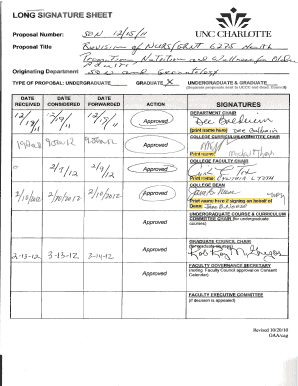 LONG SIGNATURE SHEET
UNC CHARLOTTE
Proposal Number: SON 12/15/11
Proposal Title Revision of NURS/GRNT 6275 Health
Promotion, Nutrition and Wellness for Older
Adults
Originating Department SON and Gerontology
TYPE OF PROPOSAL: UNDERGRADUATE GRADUATE X UNDERGRADUATE & GRADUATE
(Separate proposals sent to UCCC and Grad. Council)
DATE RECEIVED
DATE CONSIDERED
DATE FORWARDED
ACTION
SIGNATURES
12/15/11
12/19/11
12/19/11
Approved
DEPARTMENT CHAIR
Dee Baldwin
[print name here:] Dee Baldwin
9 Jan 2012
Approved
COLLEGE CURRICULUM COMMITTEE CHAIR
Print name:
2/7/12
2/9/12
Approved
COLLEGE FACULTY CHAIR
Print name:
2/10/2012
2/10/2012
2/10/2012
Approved
COLLEGE DEAN
Print name here if signing on behalf of
Dean:
Approved
UNDERGRADUATE COURSE & CURRICULUM
COMMITTEE CHAIR (for undergraduate
courses)
2-13-12
3-13-12
3-14-12
Approved
GRADUATE COUNCIL CHAIR
(for graduate courses)
Rob Roy McGregor
Approved
FACULTY GOVERNANCE SECRETARY
(noting Faculty Council approval on Consent
Calendar)
FACULTY EXECUTIVE COMMITTEE
(if decision is appealed)
Revised 10/20/10
OAA/cag